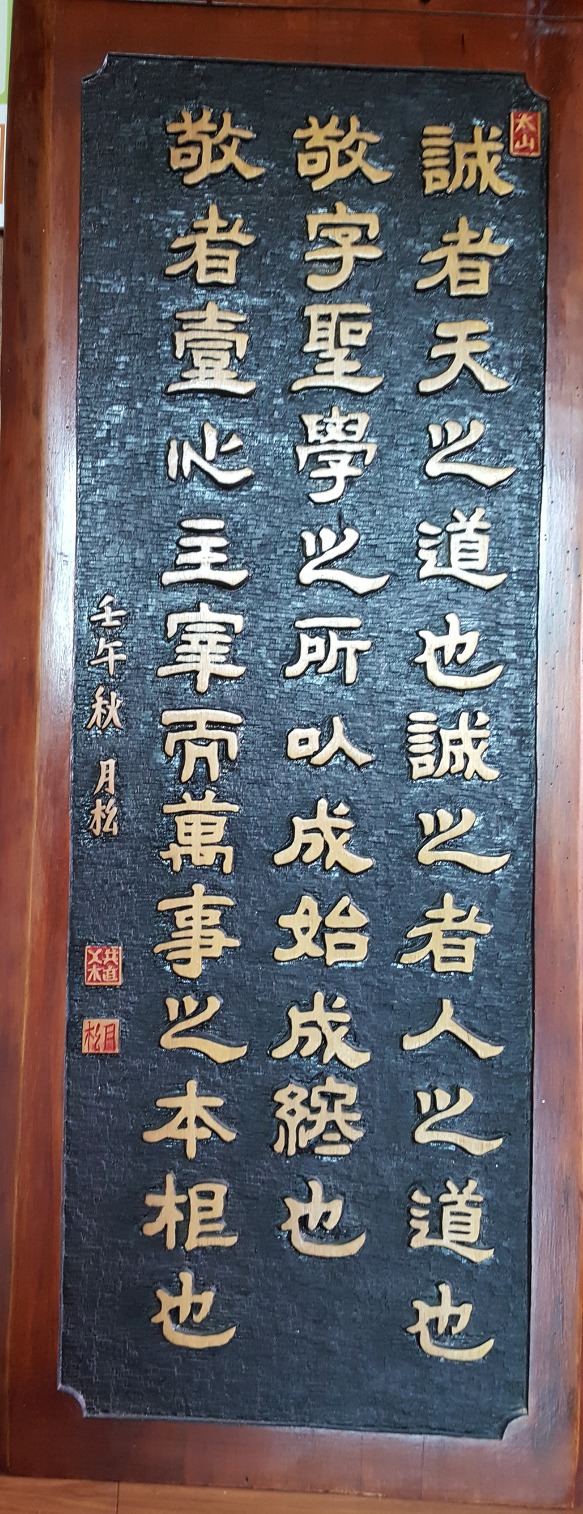 太山
誠者天之道也誠之者人之道也
敬字聖學之所以成始成終也
敬者壹心主宰而萬事之本根也
壬午秋 月松
月松